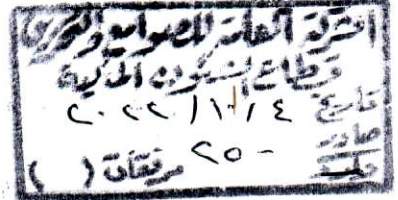 الشركة العامة للصوامع والتخزين
قطاع الشئون المالية
تاريخ ٢٠٢٢/١٠/١٤
صادر ٢٥٠
مرفقات ( )